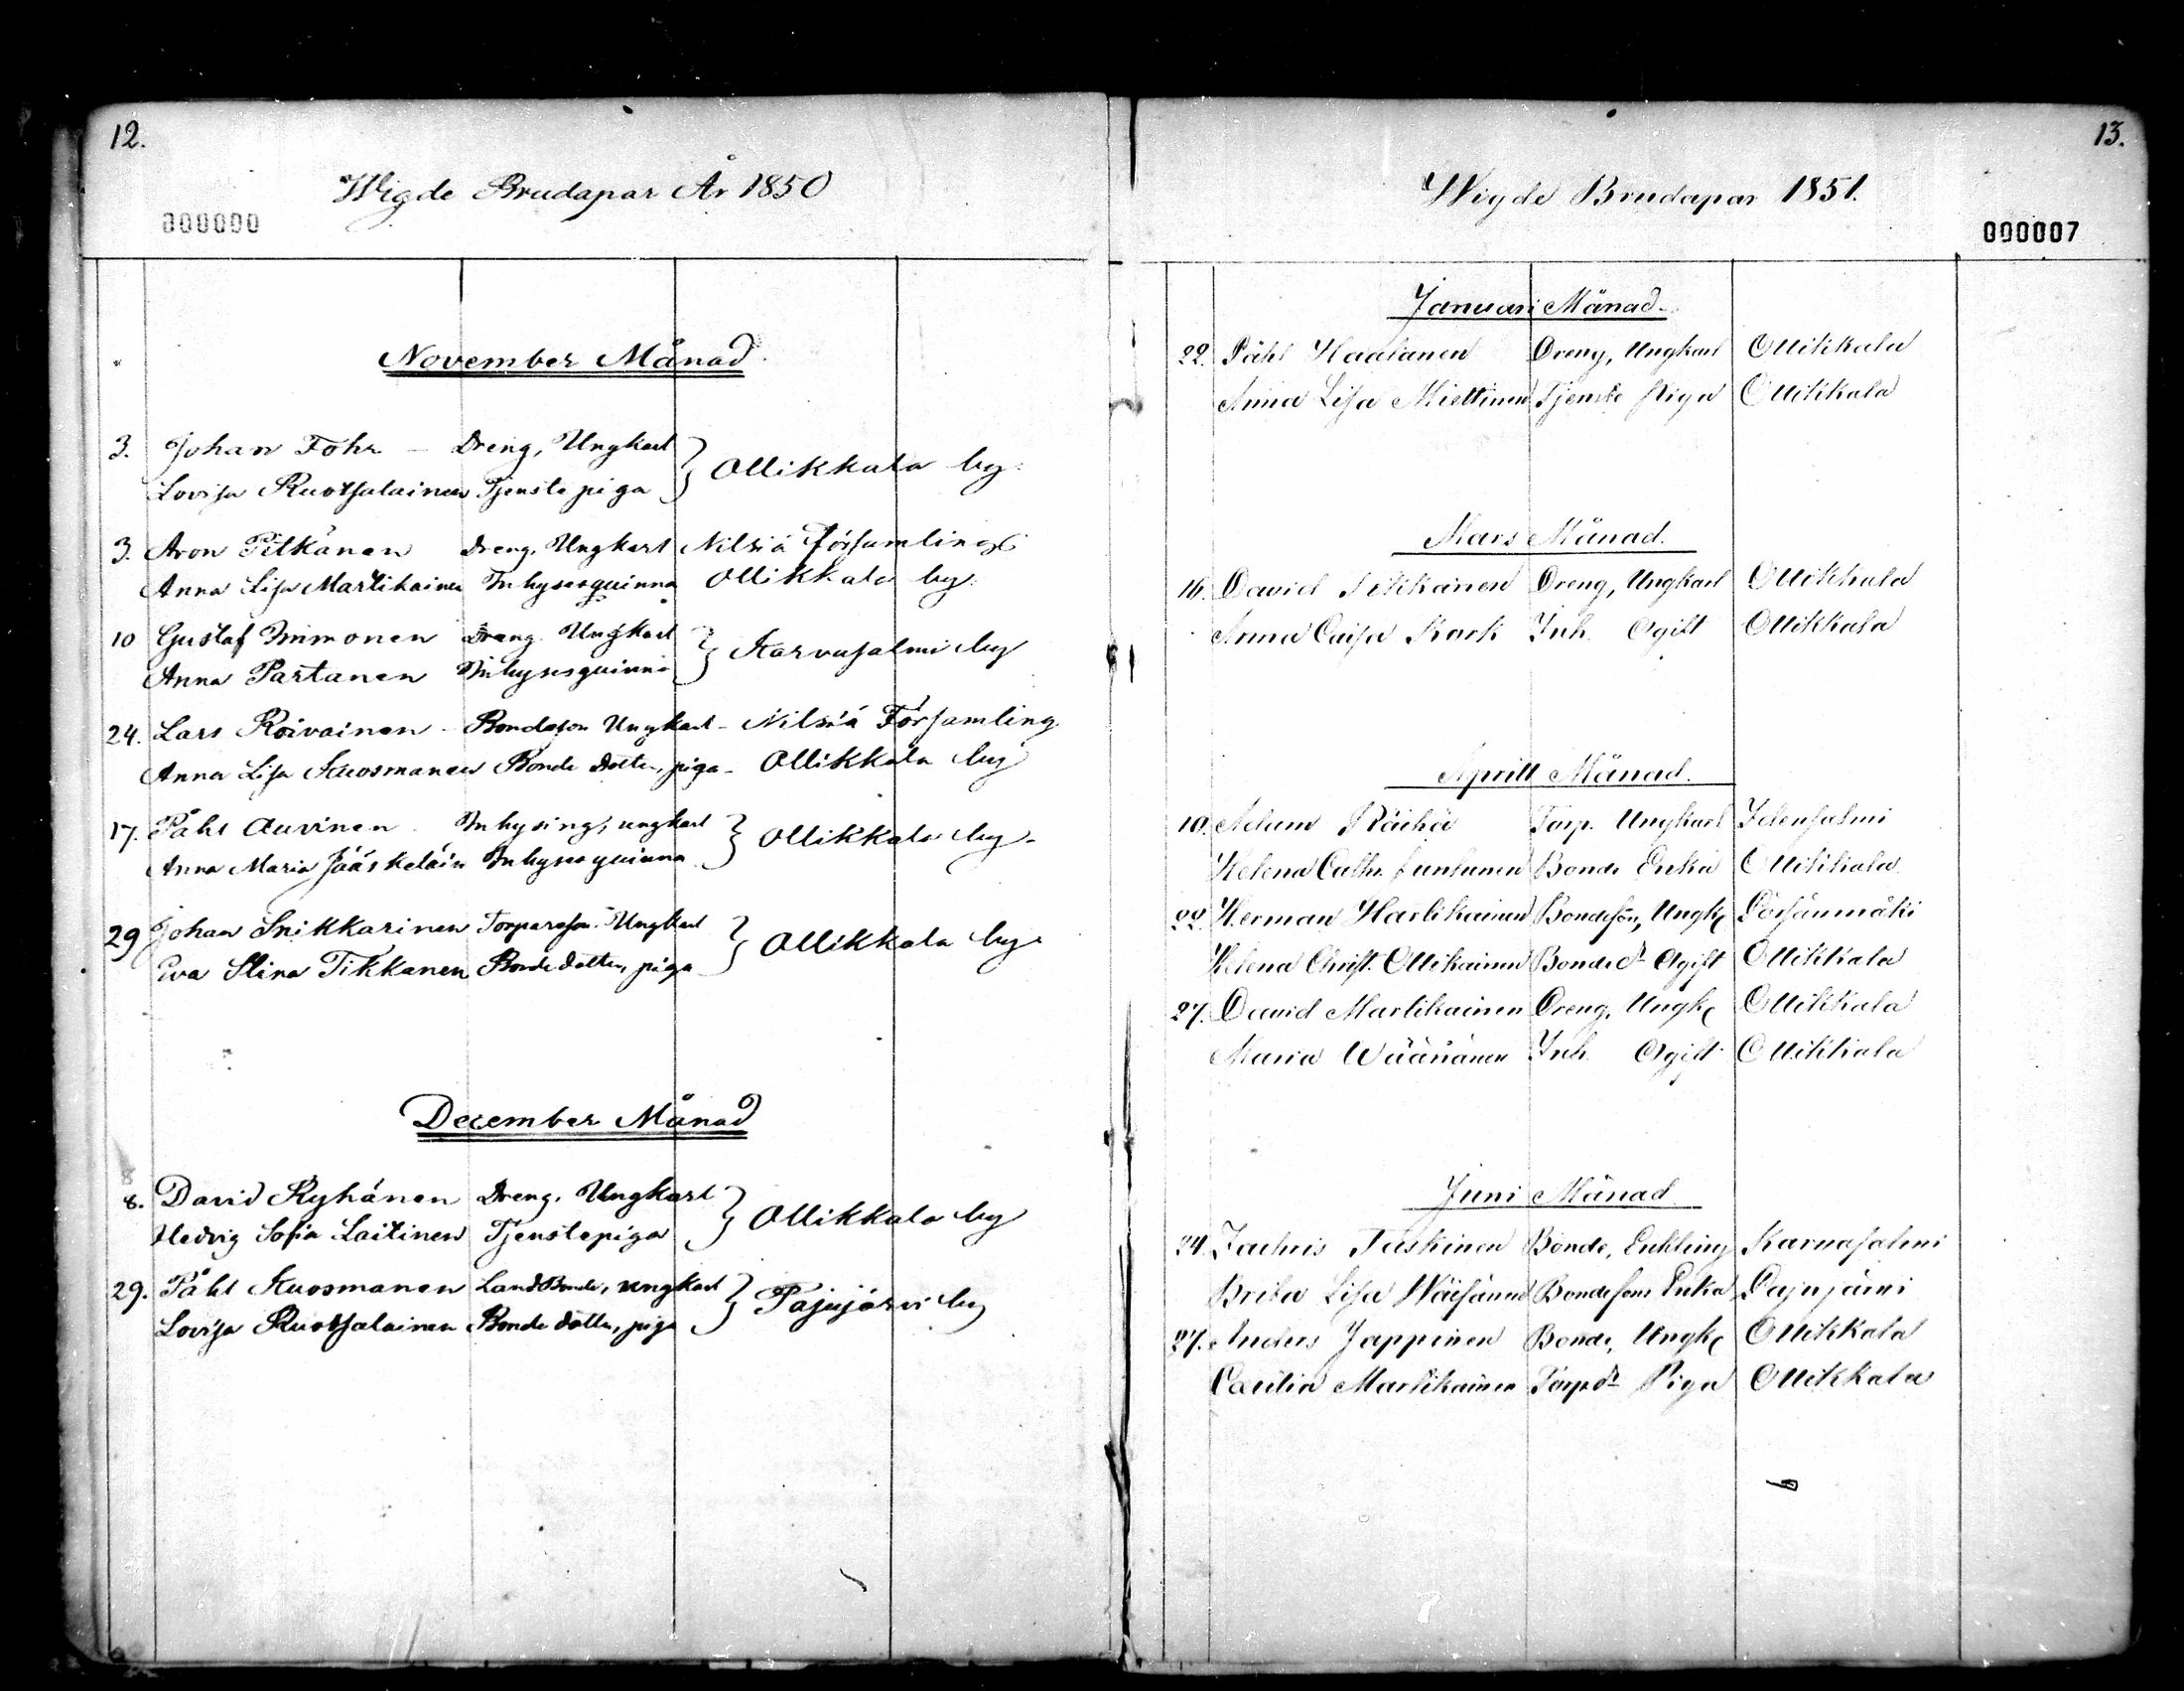 12.
Wigde Brudapar År 1850
000000
November Månad
3. Johan Fohr – Dreng, Ungkarl } Ollikkala by
Lovisa Ruotsalainen Tjenstepiga
3. Aron Pitkänen Dreng, Ungkarl Nilsiä Församling
Anna Lisa Martikainen Inhysesquinna Ollikkala by
10 Gustaf Immonen Dreng Ungkarl } Karvasalmi by
Anna Partanen Inhysesquinna
24. Lars Roivainen – Bondeson Ungkarl – Nilsiä Församling
Anna Lisa Kuosmanen Bonde dotter, piga – Ollikkala by
17. Påhl Auvinen Inhysing, ungkarl } Ollikkala by
Anna Maria Jääskeläin Inhysesquinna
29 Johan Snikkarinen Torpareson Ungkarl } Ollikkala by
Eva Stina Tikkanen Bondedotter, piga
December Månad
8
8. David Ryhänen Dreng, Ungkarl } Ollikkala by
Hedvig Sofia Laitinen Tjenstepiga
29. Påhl Kuosmanen LandBonde, ungkarl } Pajujärvi by
Lovisa Ruotsalainen Bonde dotter, piga
13.
Wigde Brudapar 1851.
000007
Januari Månad
22. Påhl Haatanen Dreng, Ungkarl Ollikkala
Anna Lisa Miettinen Tjenste Piga Ollikkala
Mars Månad.
16. David Pitkänen Dreng, Ungkarl Ollikkala
Anna Caisa Kork Inh. Ogift Ollikkala
Aprill Månad.
10. Adam Räihä Torp. Ungkarl Idensalmi
Helena Cathr. Juntunen Bonde Enka Ollikkala
22. Herman Hartikainen Bondeson, Ungk. Pörsänmäki
Helena Christ. Ollikainen Bonded:r Ogift Ollikkala
27. David Martikainen Dreng, Ungk. Ollikkala
Maria Wäänänen Inh. Ogift Ollikkala
Juni Månad
24. Zachris Taskinen Bonde, Enkling Karvasalmi
Brita Lisa Wäisänen Bondesons Enka Pajujärvi
27. Anders Jappinen Bonde, Ungk. Ollikkala
Cæcilia Martikainen Torpd:r Piga Ollikkala